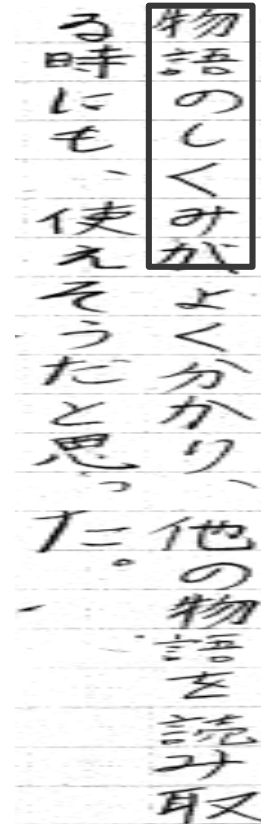 物語のしくみがよく分かり、他の物語を読み取
る時にも、使えそうだと思った。